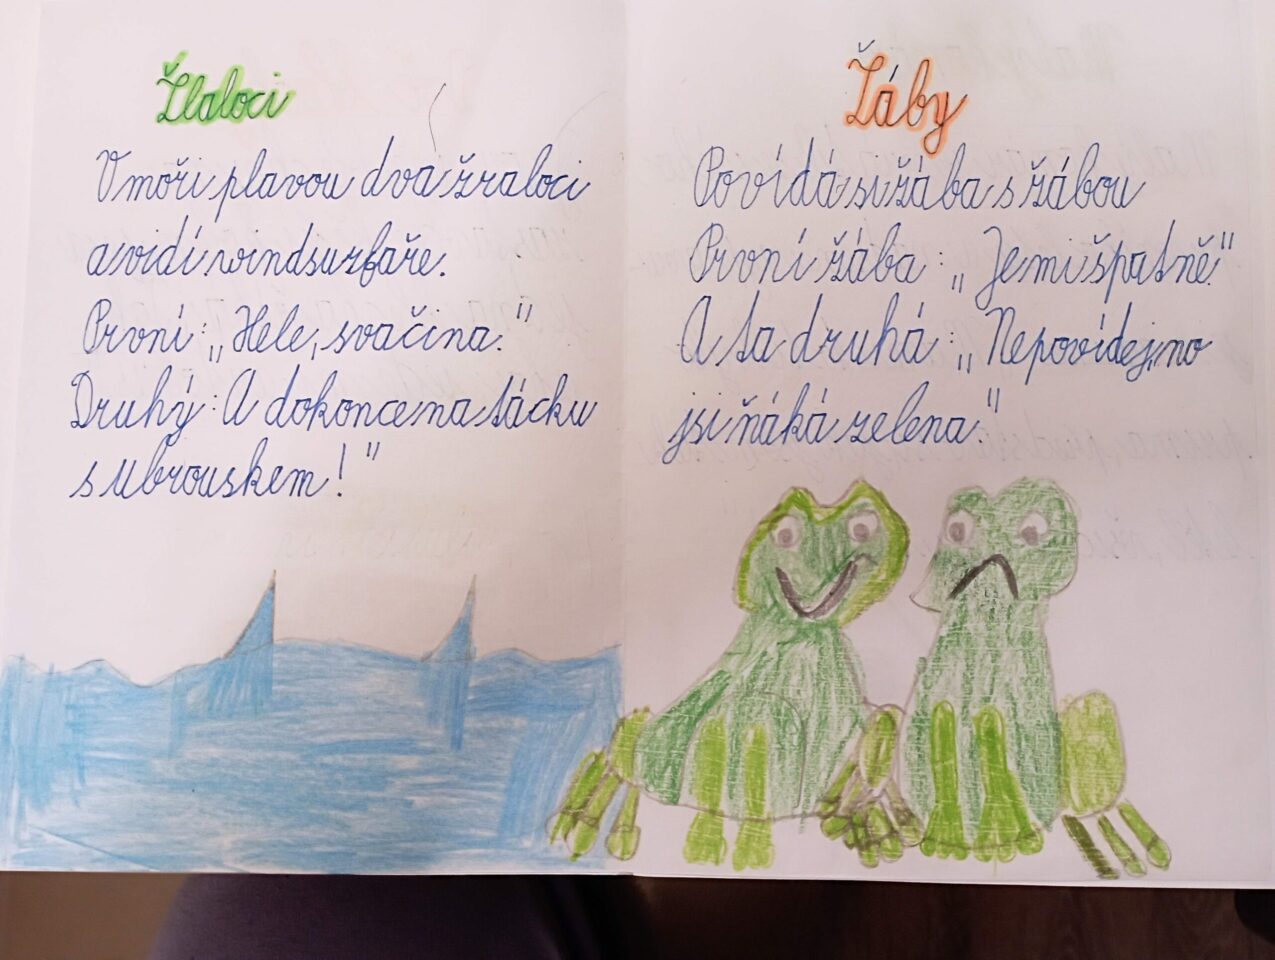 Žraloci
V moři plavou dva žraloci
a vidí windsurfaře.
První: „Hele, svačina."
Druhý: A dokonce na tácku
s ubrouskem!"
Žáby
Povídá si žába s žábou
První žába: „Je mi špatně!"
A ta druhá: „Nepovídej, no
jsi ňáká zelena."